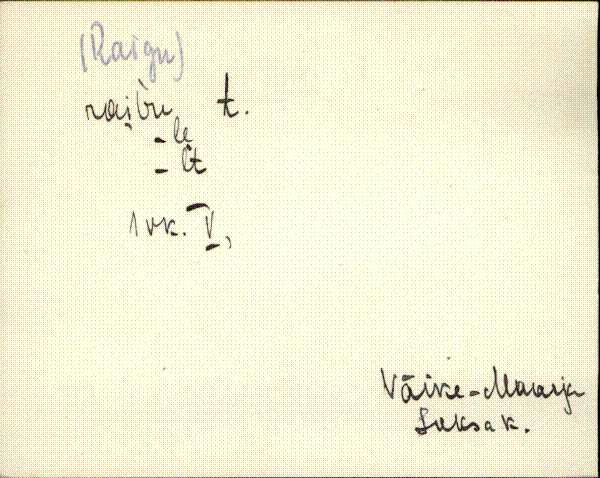 (Raigu)
raibu t.
-le
-lt
1 vk. V,
Väike-Maarja
Suksa k.